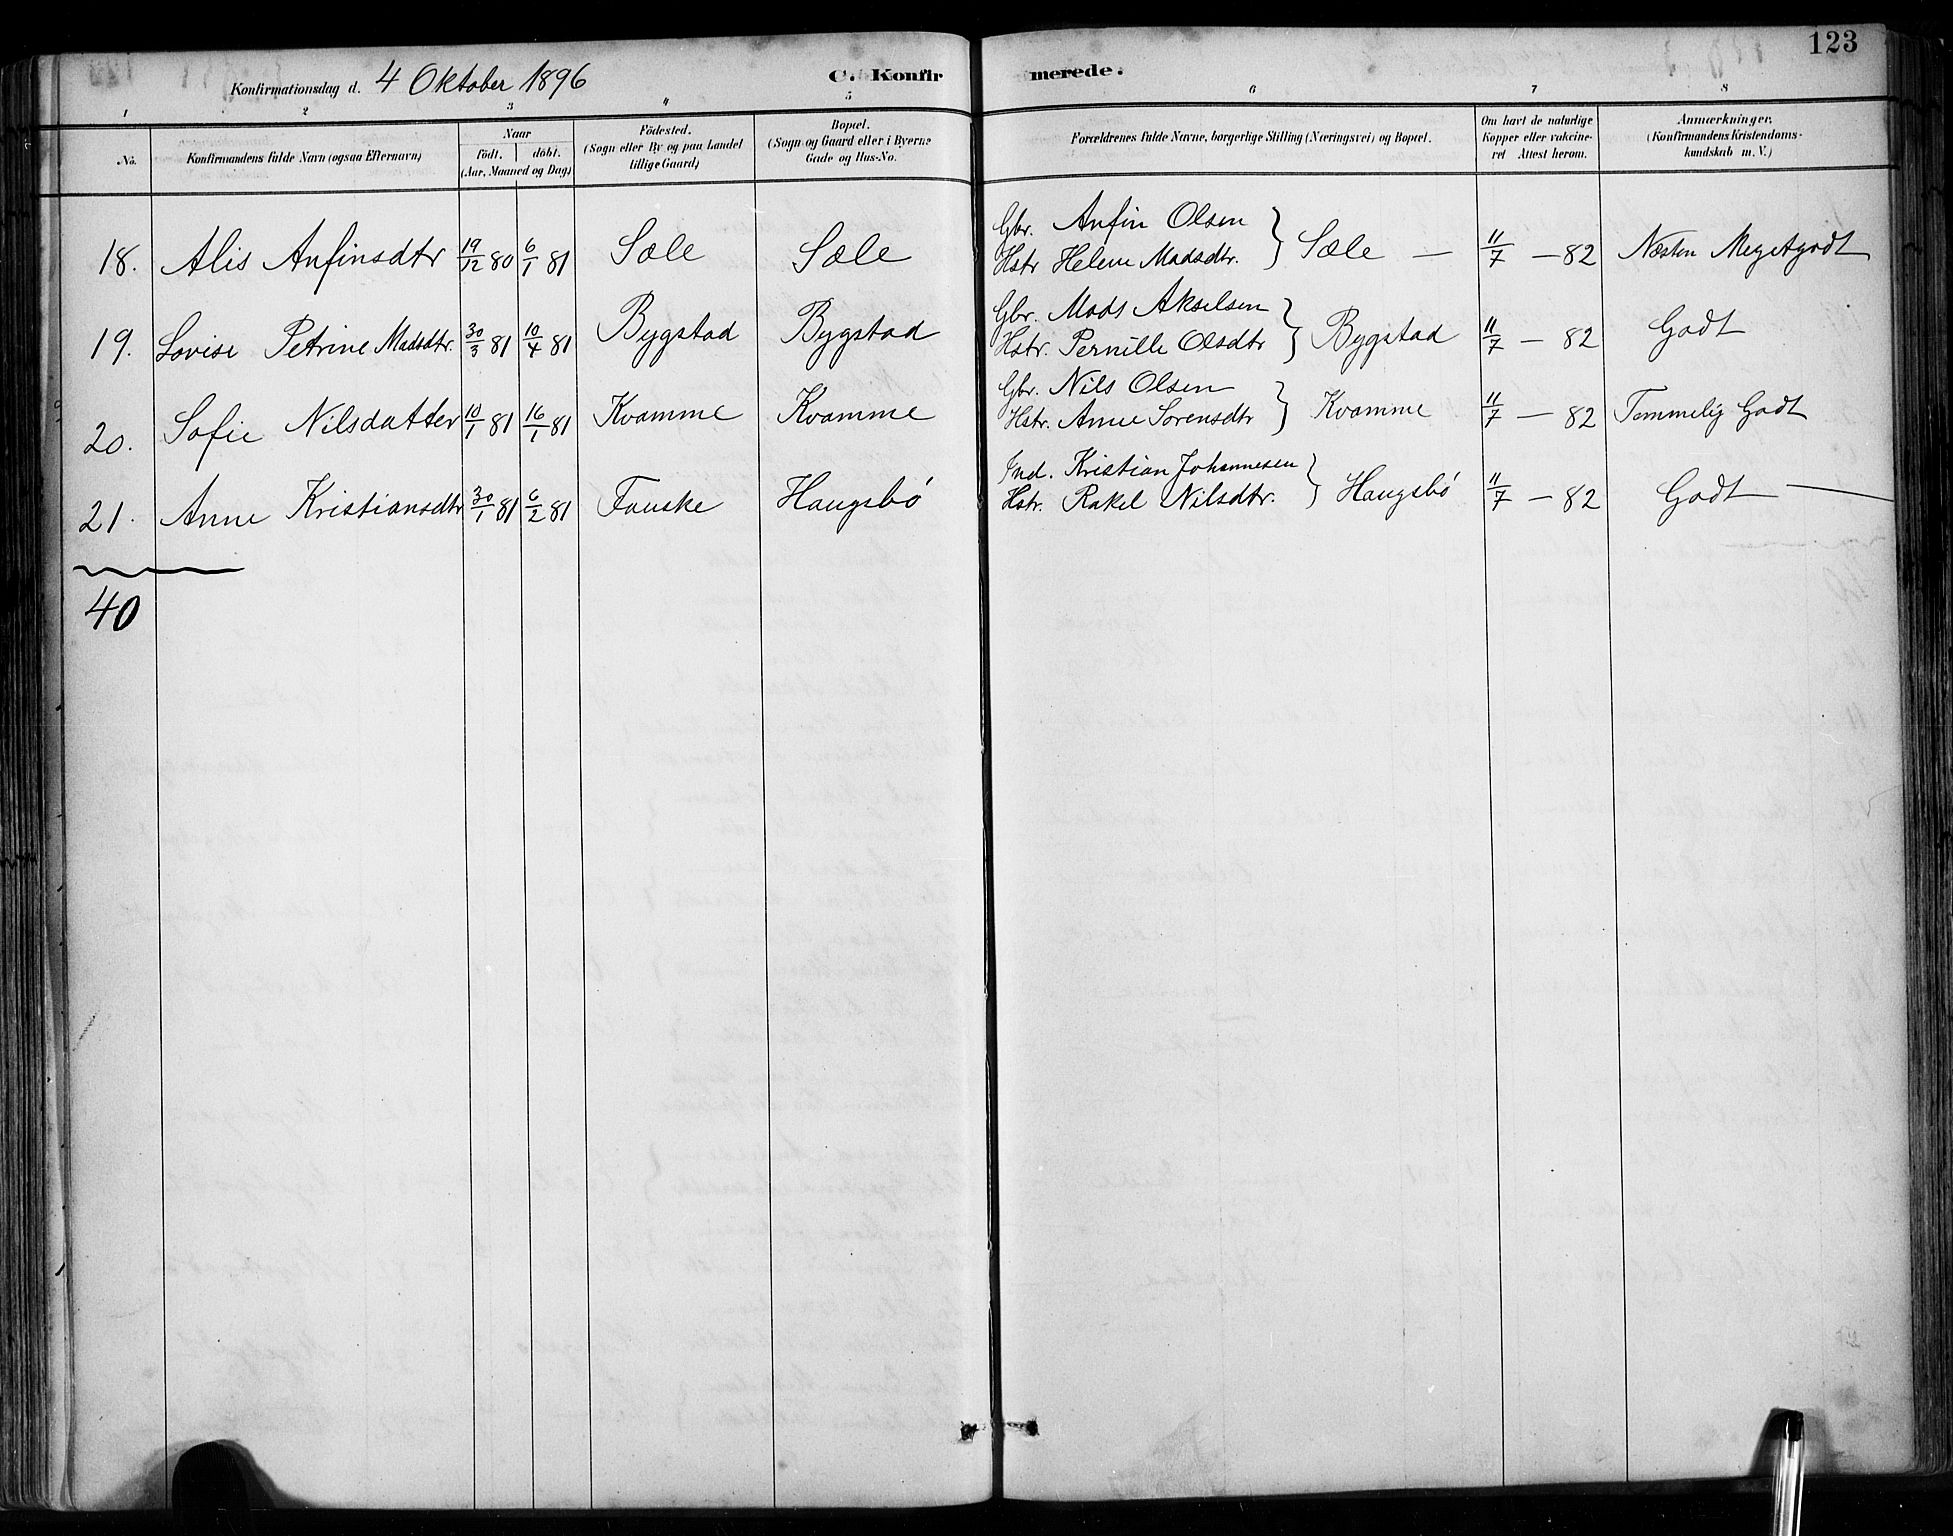 123
Konfirmationsdag d. 4 Oktober 1896 C. Konfirmerede.
1 2 3 4 5 6 7 8
No. Konfirmandens fulde Navn (ogsaa Efternavn) Naar födt. döbt. (Aar, Maaned og Dag) Födested. (Sogn eller By og paa Landet tillige Gaard) Bopæl. (Sogn og Gaard eller i Byerne Gade og Hus-No. Forældrenes fulde Navne, borgerlige Stilling (Næringsvei) og Bopæl. Om havt de naturlige Kopper eller vakcineret Attest herom. Anmærkninger. (Konfirmandens Kristendomskundskab m. V.)
18. Alis Anfinsdtr 19/12 80 6/1 81 Sæle Sæle Gbr. Anfin Olsen
Hstr Helene Madsdtr. } Sæle — 11/7 — 82 Næsten Megetgodt
19. Lovise Petrine Madsdtr. 30/3 81 10/4 81 Bygstad Bygstad Gbr. Mads Akselsen
Hstr. Pernille Olsdtr } Bygstad 11/7 — 82 Godt
20. Sofie Nilsdatter 10/1 81 16/1 81 Kvamme Kvamme Gbr. Nils Olsen
Hstr. Anne Sorensdtr } Kvamme 11/7 — 82 Temmelig Godt
21. Anne Kristiansdtr 30/1 81 6/2 81 Fauske Haugsbö Ind. Kristian Johannesen
Hstr. Rakel Nilsdtr. } Haugsbö 11/7 — 82 Godt —
40